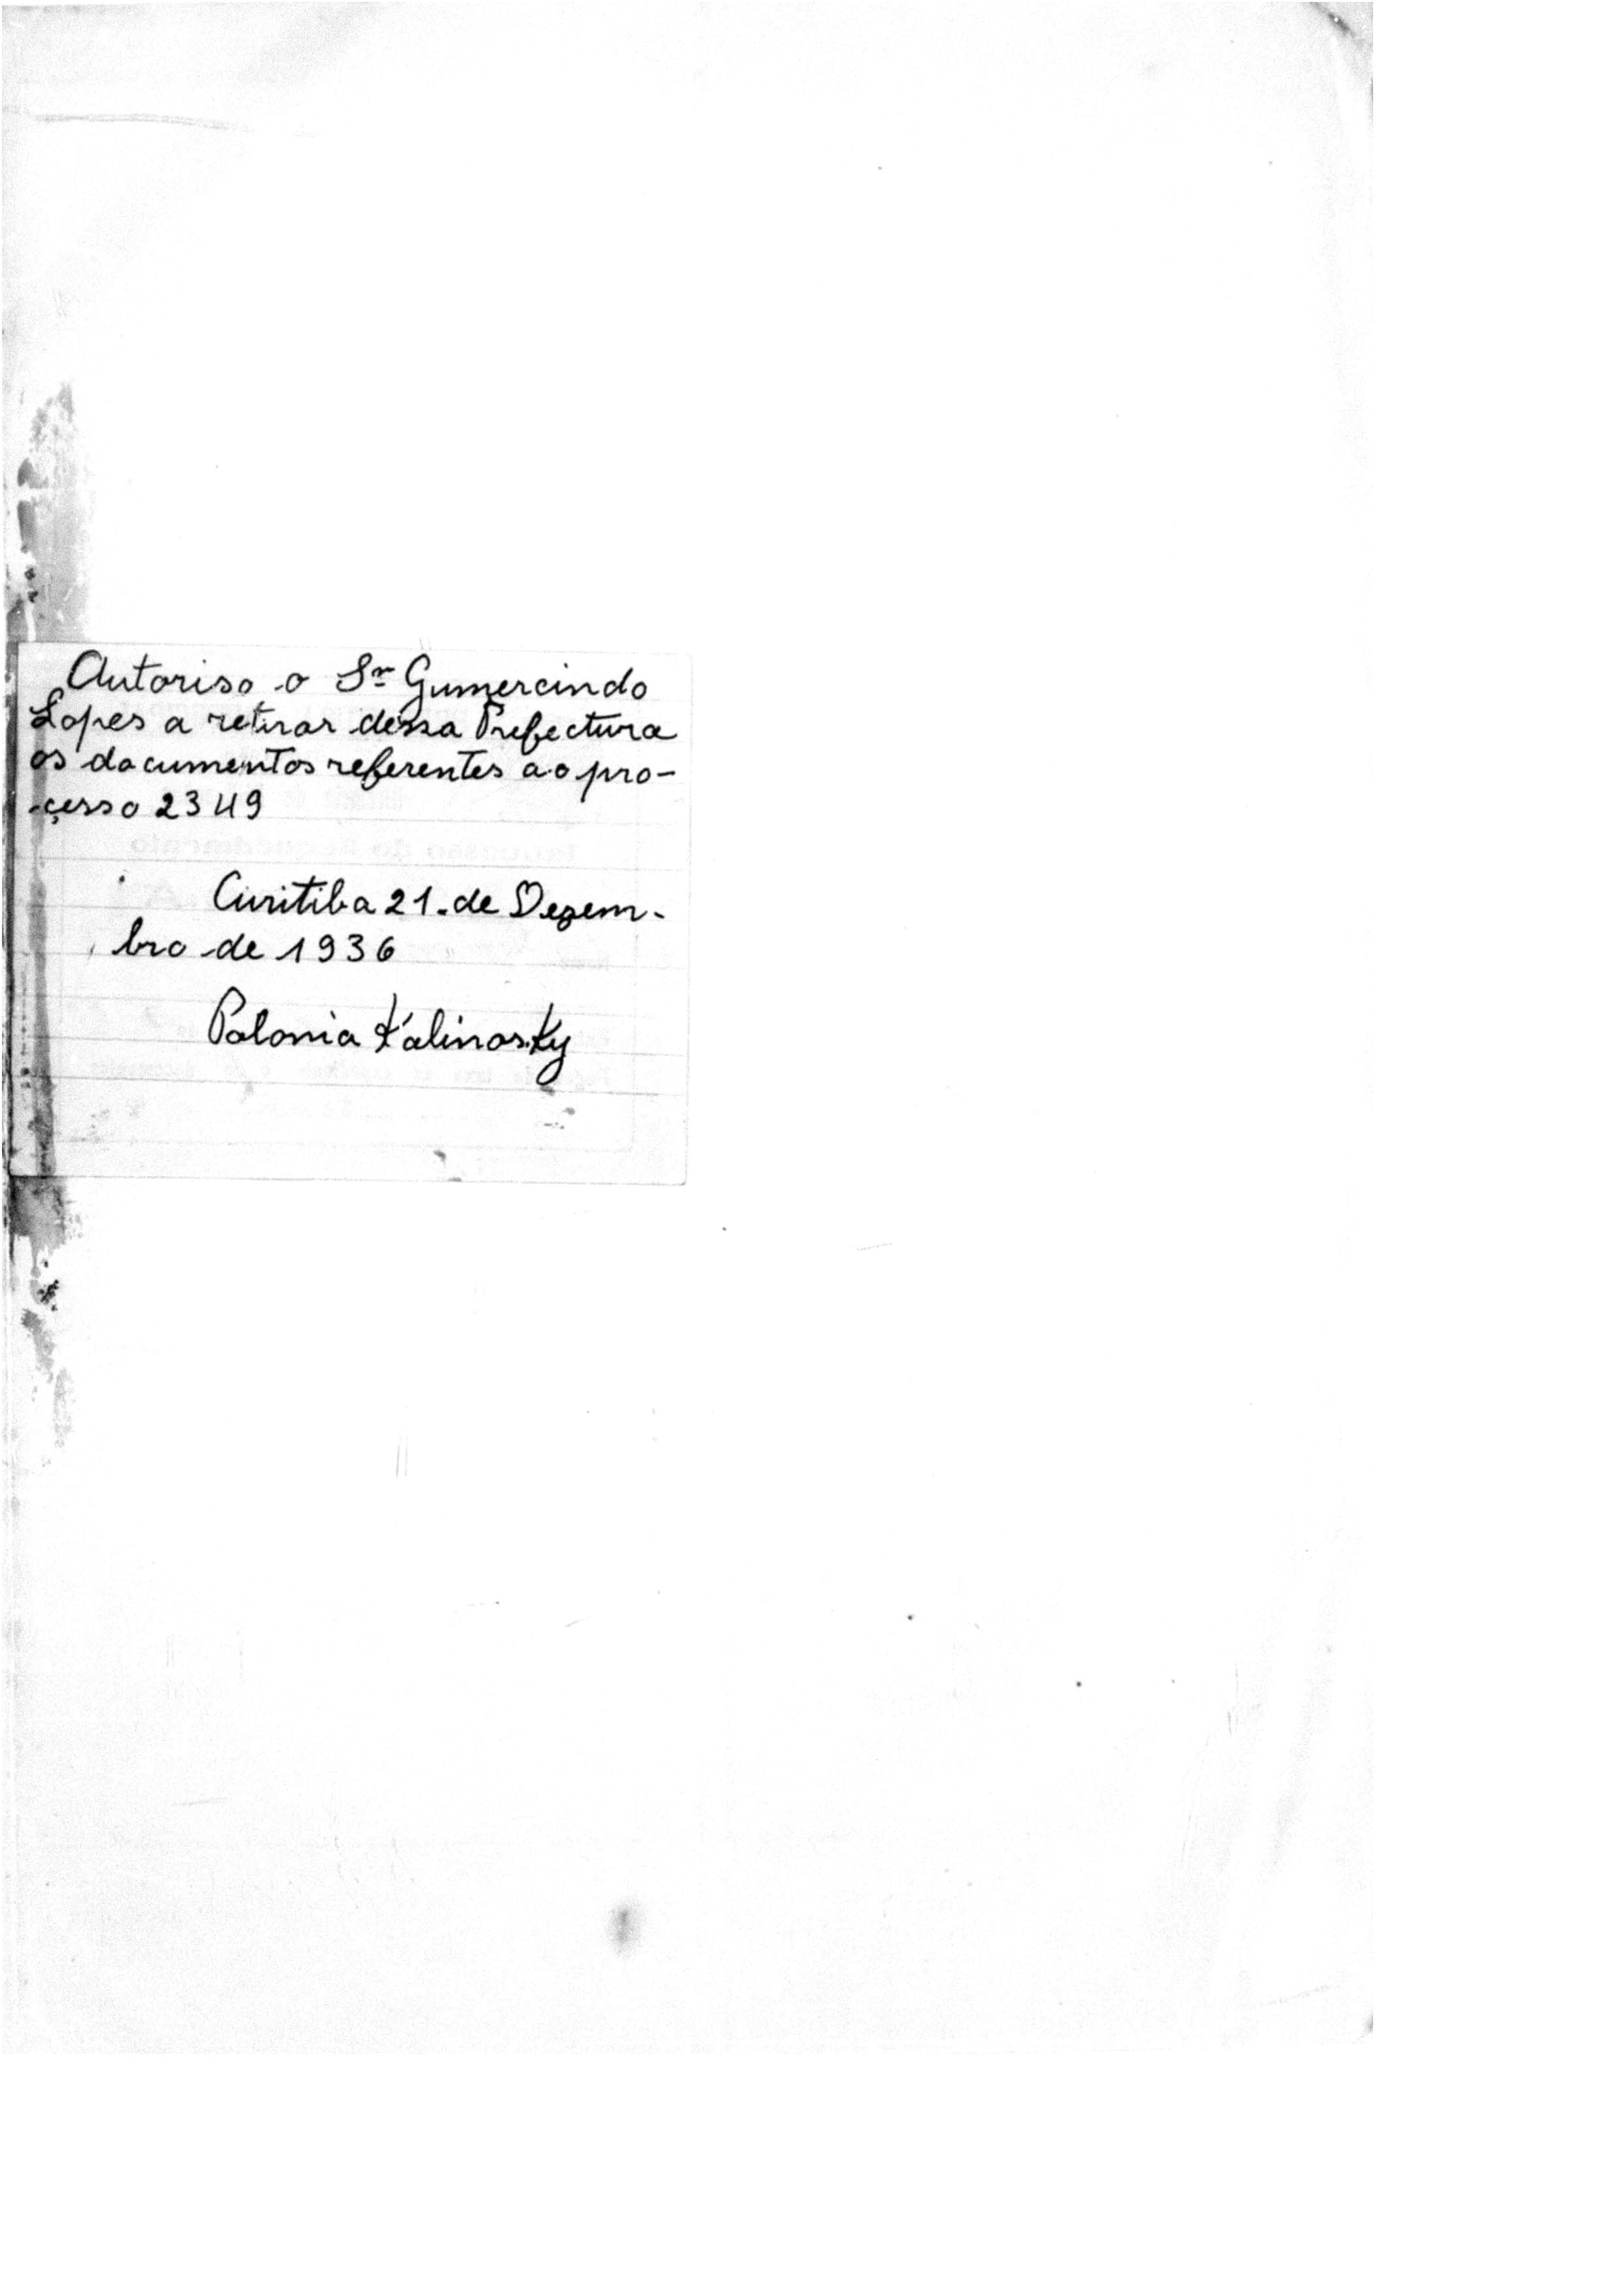 Autoriso o Sr Gumercindo
Lopes a retirar dessa Prefectura
os documentos referentes ao pro-
çesso 2349
Curitiba 21. de Dezem-
bro de 1936
Polonia Kalinosky